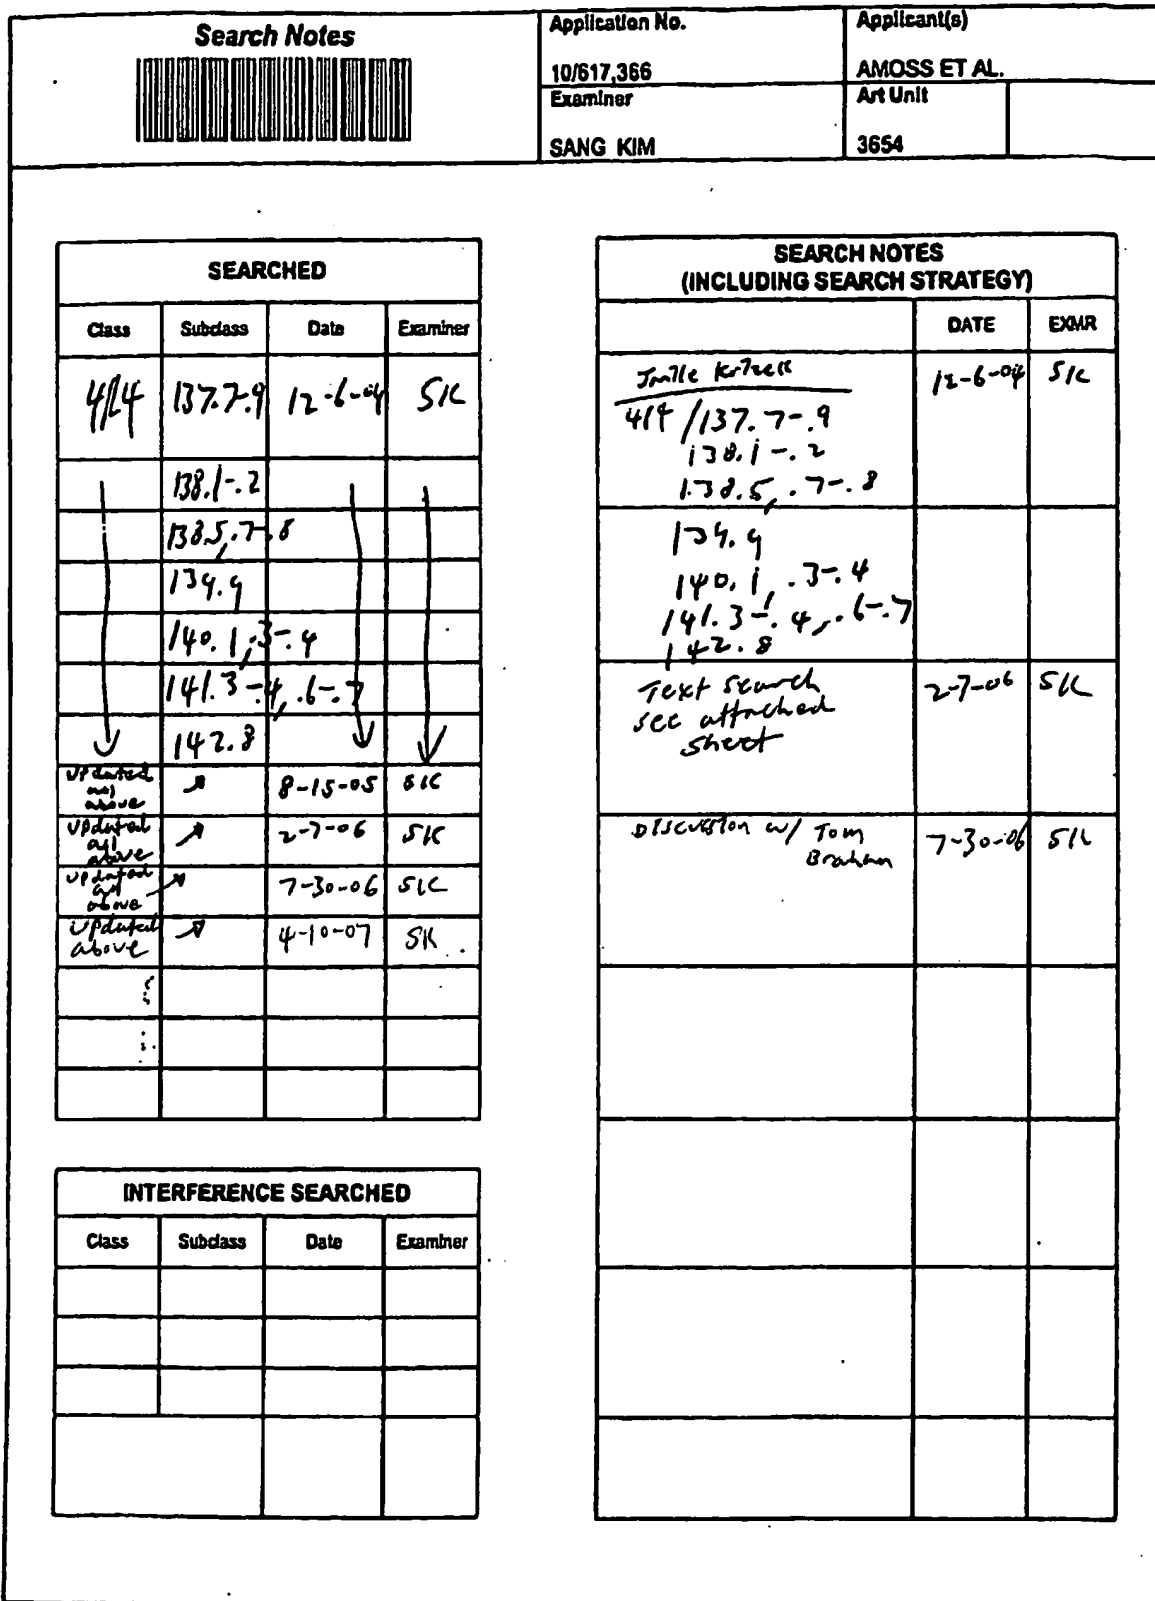 Search Notes
Application No.
10/617,366
Applicant(s)
AMOSS ET AL.
Examiner
SANG KIM
Art Unit
3654
SEARCHED
Class Subclass Date Examiner
414 137.7-.9 12-6-04 SK
138.1-.2
138.5, .7-.8
139.9
140.1, .3-.4
141.3-.4, .6-.7
142.8
updated
all
above
8-15-05 SK
updated
all
above
2-7-06 SK
updated
all
above
7-30-06 SK
updated
above
4-10-07 SK
INTERFERENCE SEARCHED
Class Subclass Date Examiner
SEARCH NOTES
(INCLUDING SEARCH STRATEGY)
DATE EXMR
12-6-04 SK
414/137.7-.9
138.1-.2
138.5, .7-.8
139.9
140.1, .3-.4
141.3-.4, .6-.7
142.8
Text search
see attached
sheet
2-7-06 SK
Discussion w/ Tom
7-30-06 SK